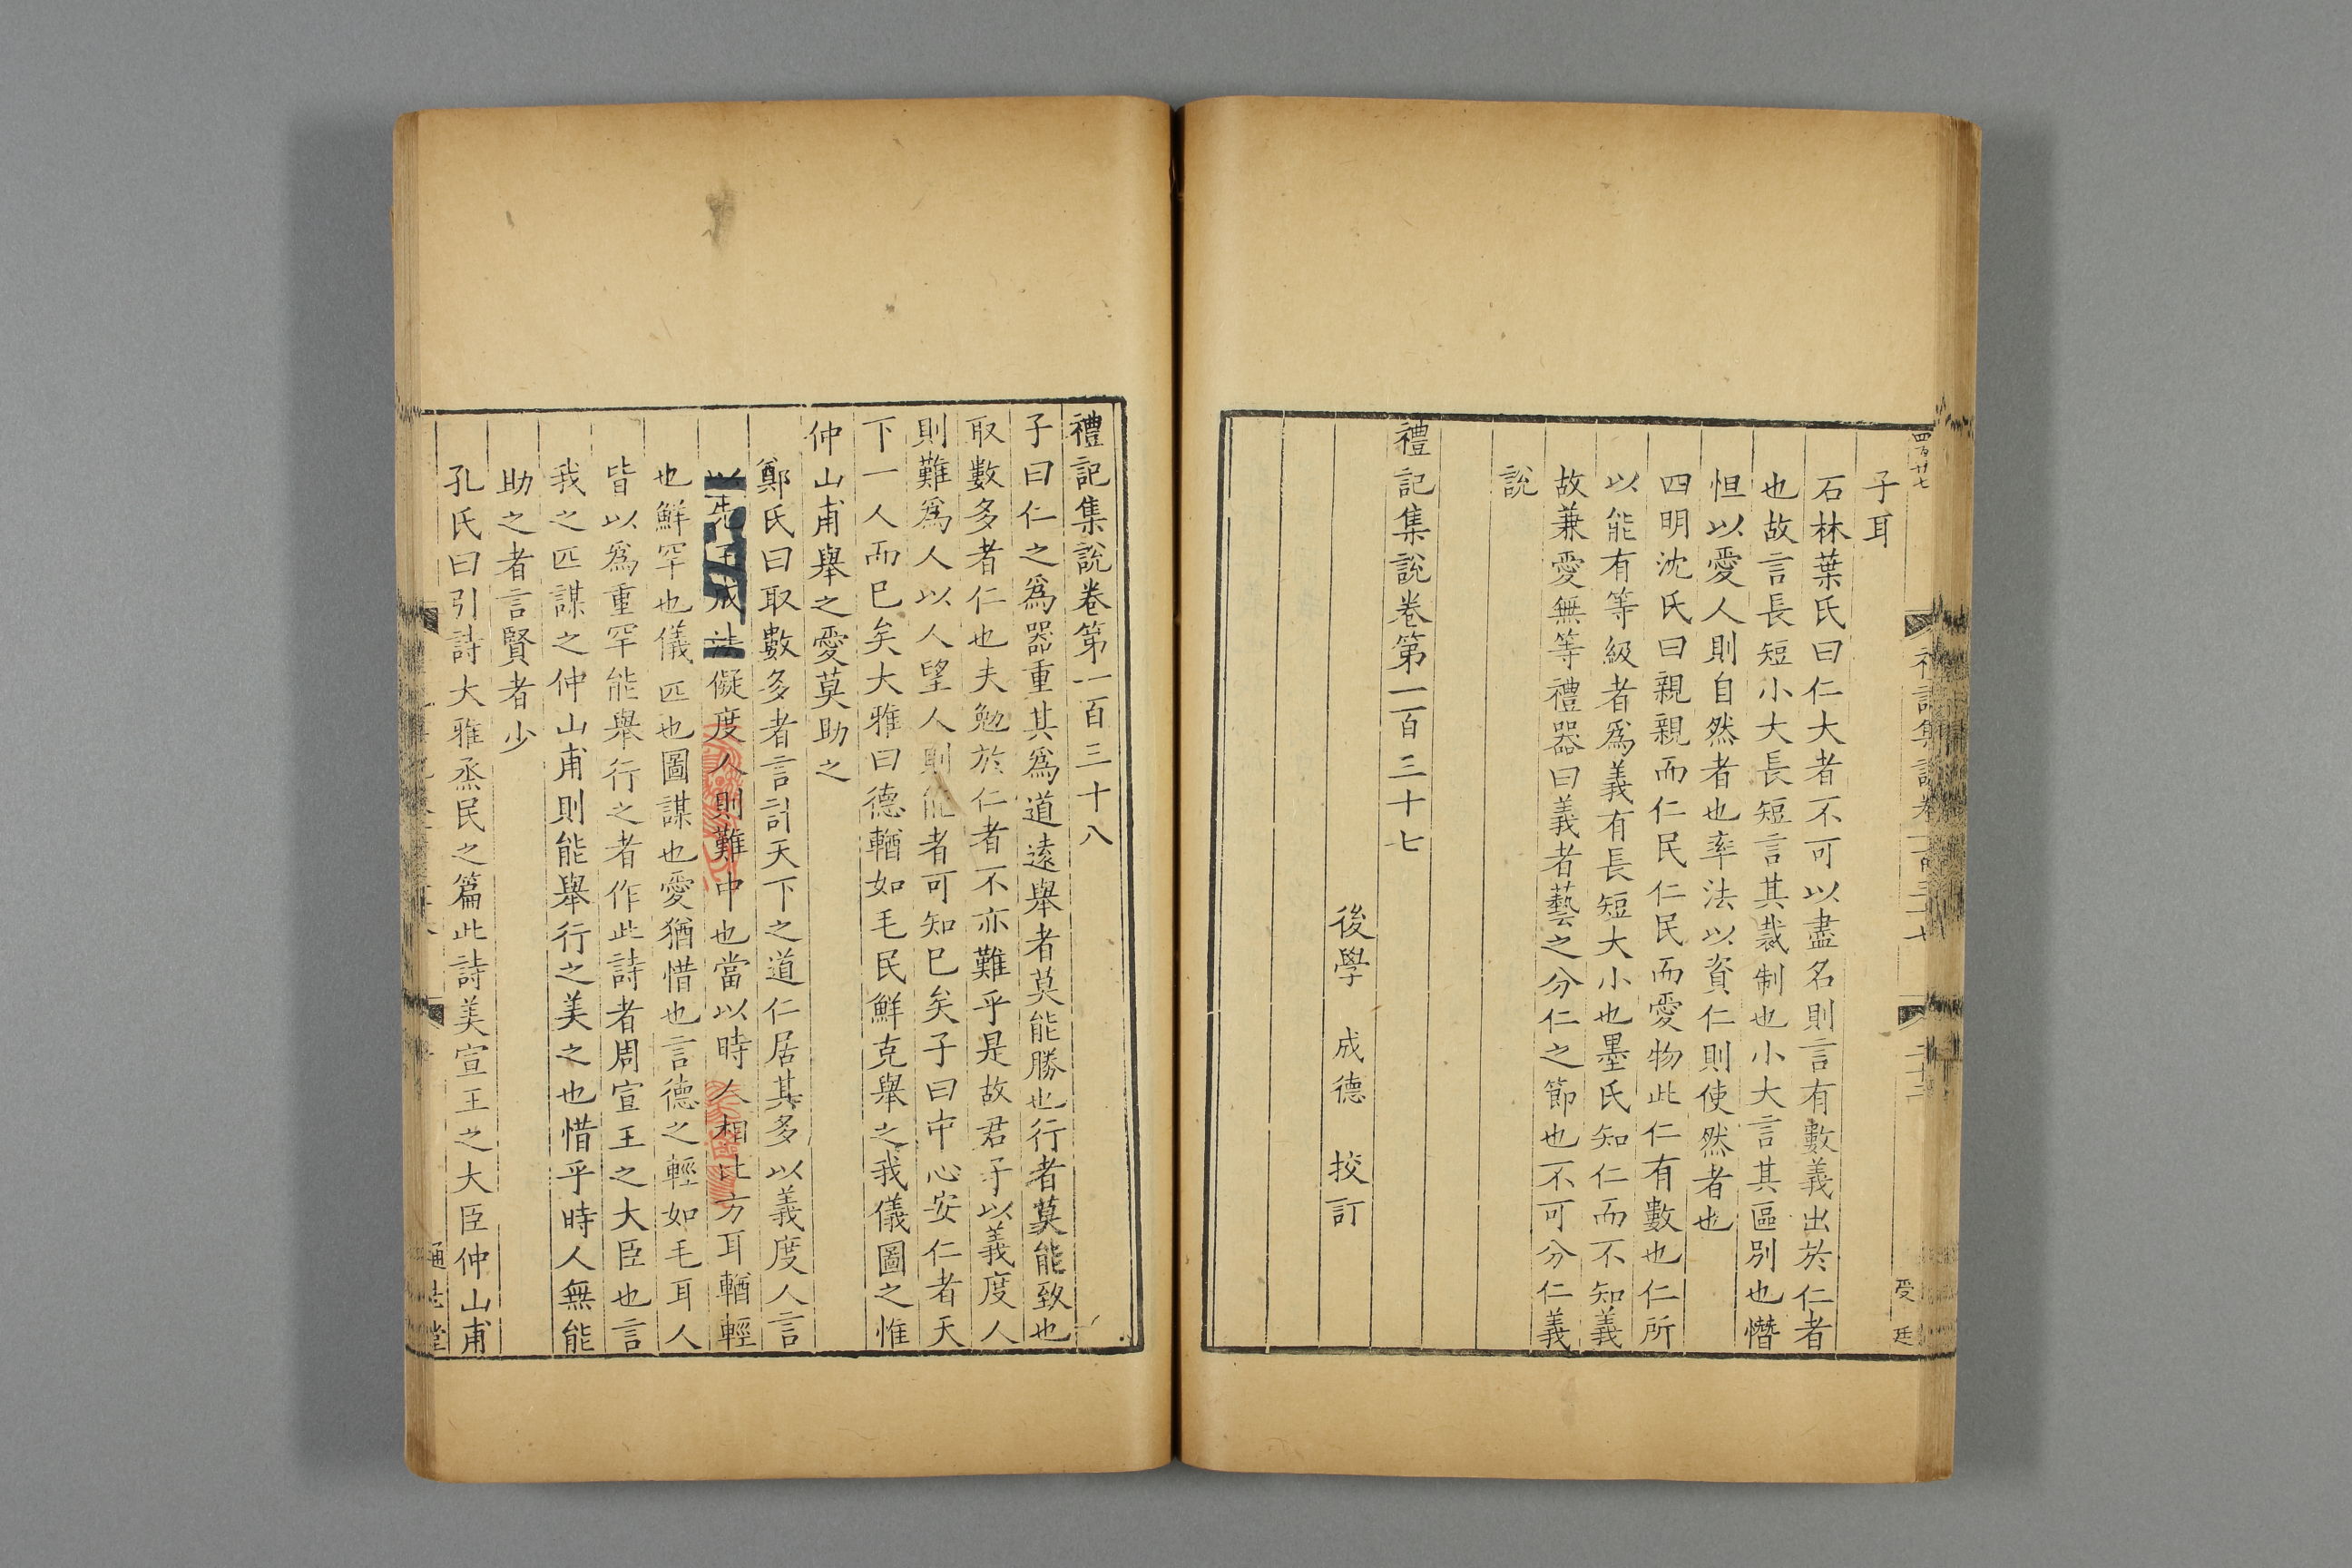 四百廿七
子耳
石林葉氏曰仁大者不可以盡名則言有數義出於仁者
也故言長短小大長短言其裁制也小大言其區別也憯
怛以愛人則自然者也率法以資仁則使然者也
四明沈氏曰親親而仁民仁民而愛物此仁有數也仁所
以能有等級者爲義有長短大小也墨氏知仁而不知義
故兼愛無等禮器曰義者藝之分仁之節也不可分仁義
說
禮記集說卷第一百三十七
後學 成德 挍訂
禮記集說卷第一百三十八
子曰仁之爲器重其爲道遠舉者莫能勝也行者莫能致也
取數多者仁也夫勉於仁者不亦難乎是故君子以義度人
則難爲人以人望人則能者可知巳矣子曰中心安仁者天
下一人而巳矣大雅曰德輶如毛民鮮克舉之我儀圖之惟
仲山甫舉之愛莫助之
鄭氏曰取數多者言計天下之道仁居其多以義度人言
以先王成法儗度人則難中也當以時人相比方耳輶輕
也鮮罕也儀匹也圖謀也愛猶惜也言德之輕如毛耳人
皆以爲重罕能舉行之者作此詩者周宣王之大臣也言
我之匹謀之仲山甫則能舉行之美之也惜乎時人無能
助之者言賢者少
孔氏曰引詩大雅烝民之篇此詩美宣王之大臣仲山甫